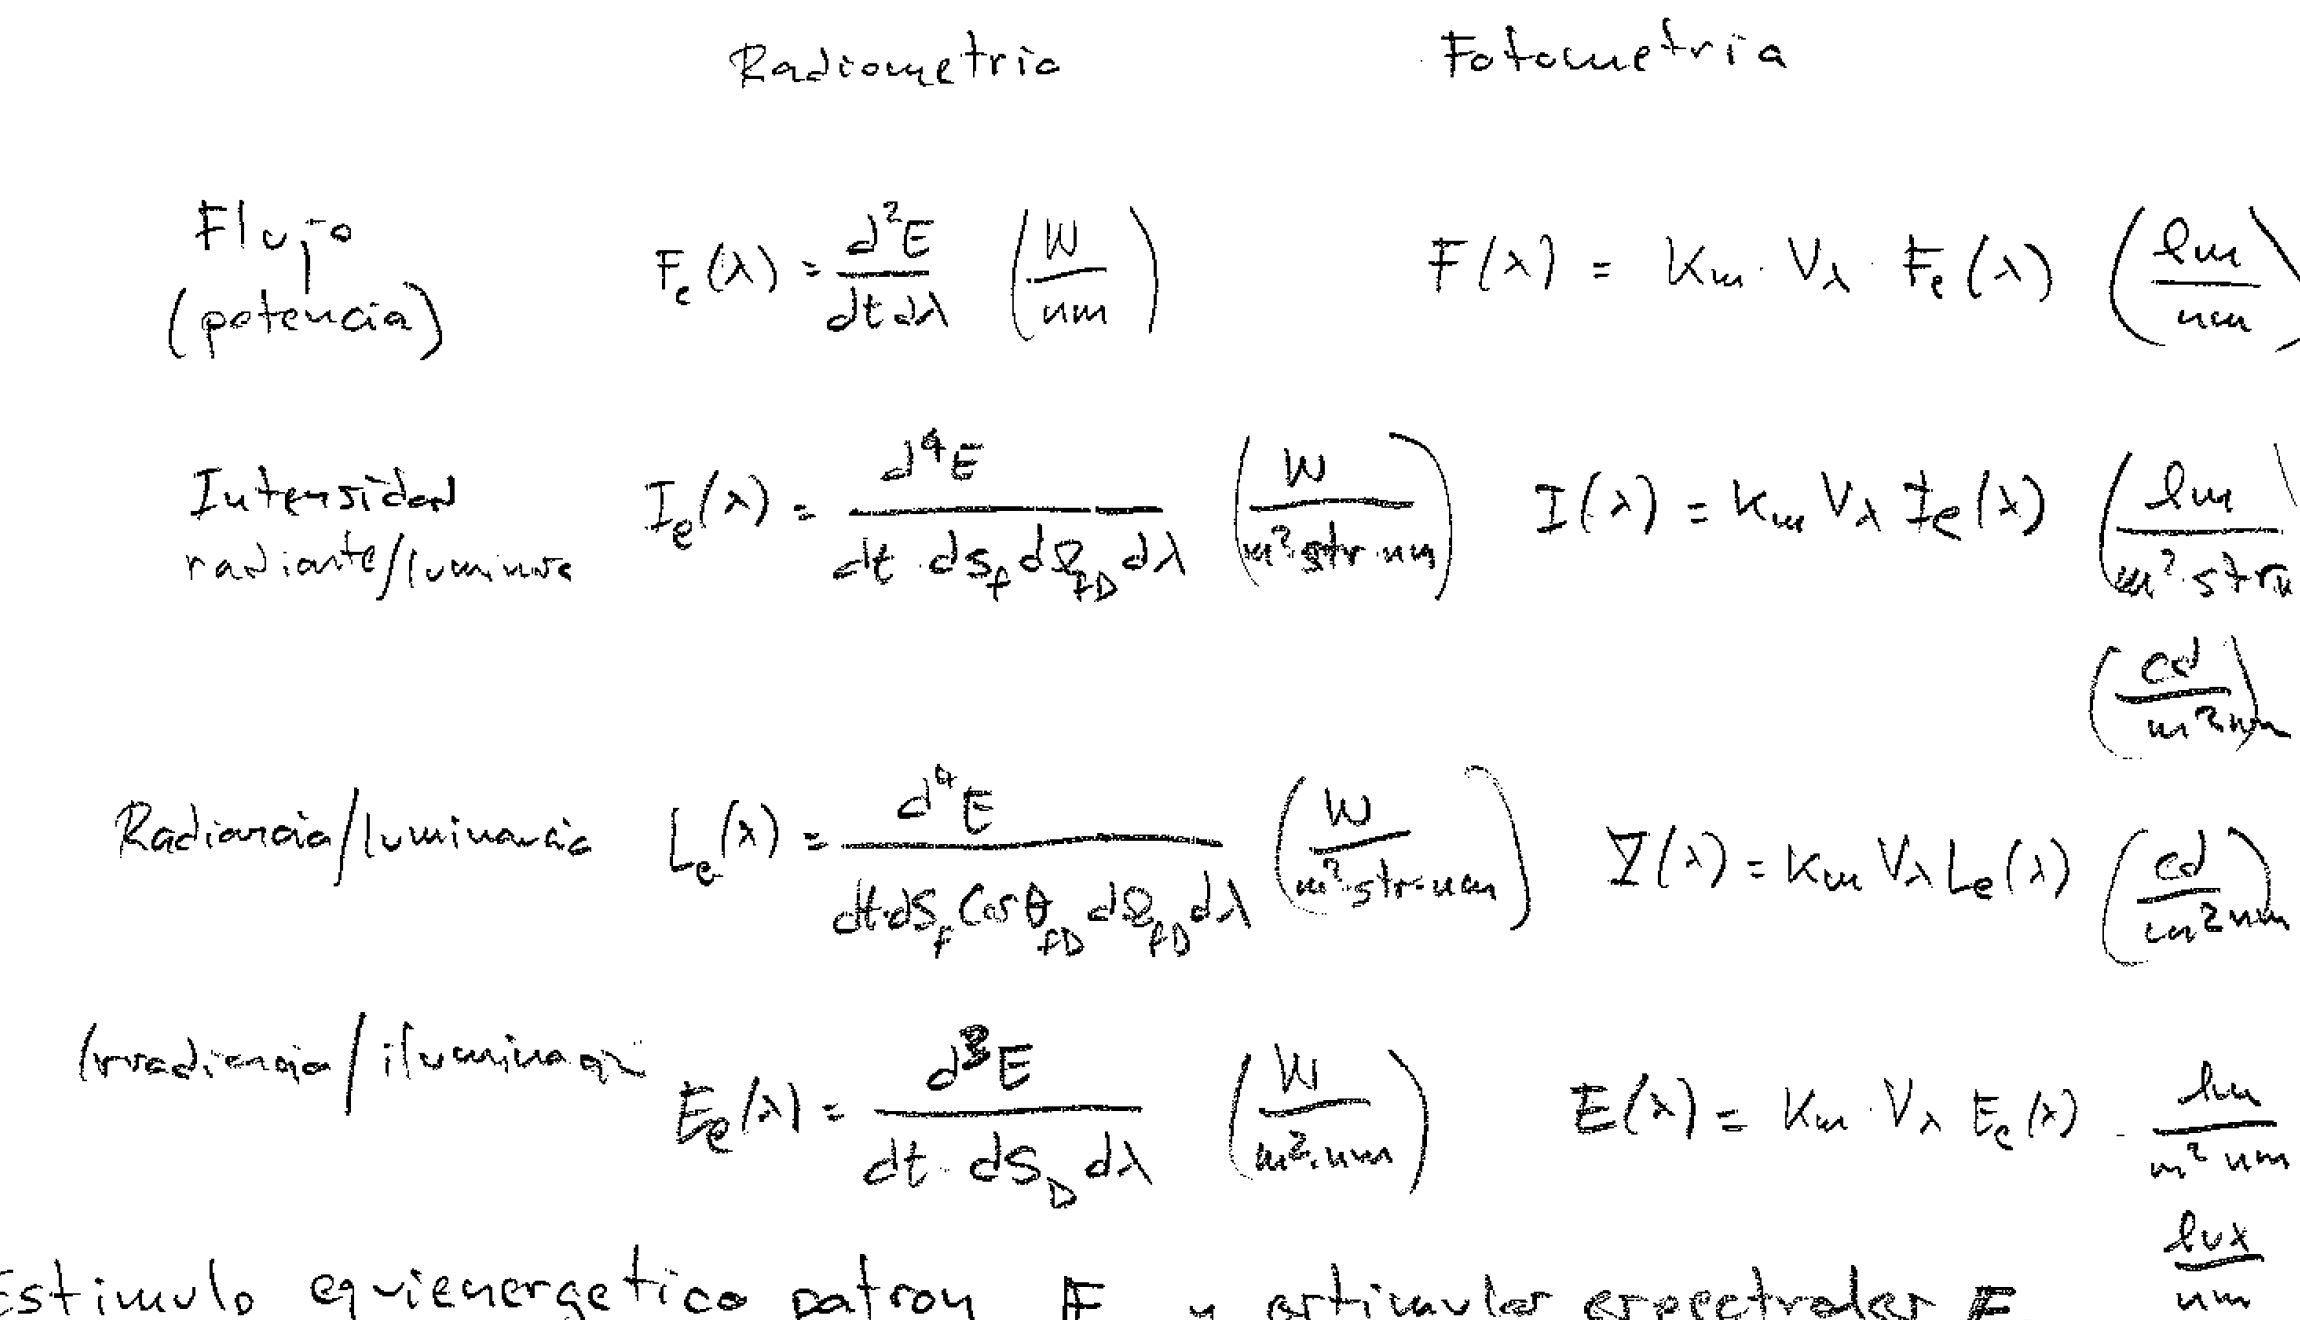 Radiometria Fotometria
Flujo (potencia) F_e(λ) = d²E / dt dλ (W / nm) F(λ) = K_m · V_λ · F_e(λ) (lm / nm)
Intensidad radiante/luminosa I_e(λ) = d⁴E / dt · dS_f dΩ_fD dλ (W / m² str·nm) I(λ) = K_m V_λ I_e(λ) (lm / m²·str
(cd / m² nm)
Radiancia/luminancia L_e(λ) = d⁴E / dt·dS_f Cos θ_fD dΩ_fD dλ (W / m²·str·nm) Σ(λ) = K_m V_λ L_e(λ) (cd / m² nm)
Irradiancia/iluminaci E_e(λ) = d³E / dt · dS_D dλ (W / m²·nm) E(λ) = K_m · V_λ E_e(λ) · lm / m² nm
lux / nm
Estimulo equienergetico patron E y estimulos espectrales E